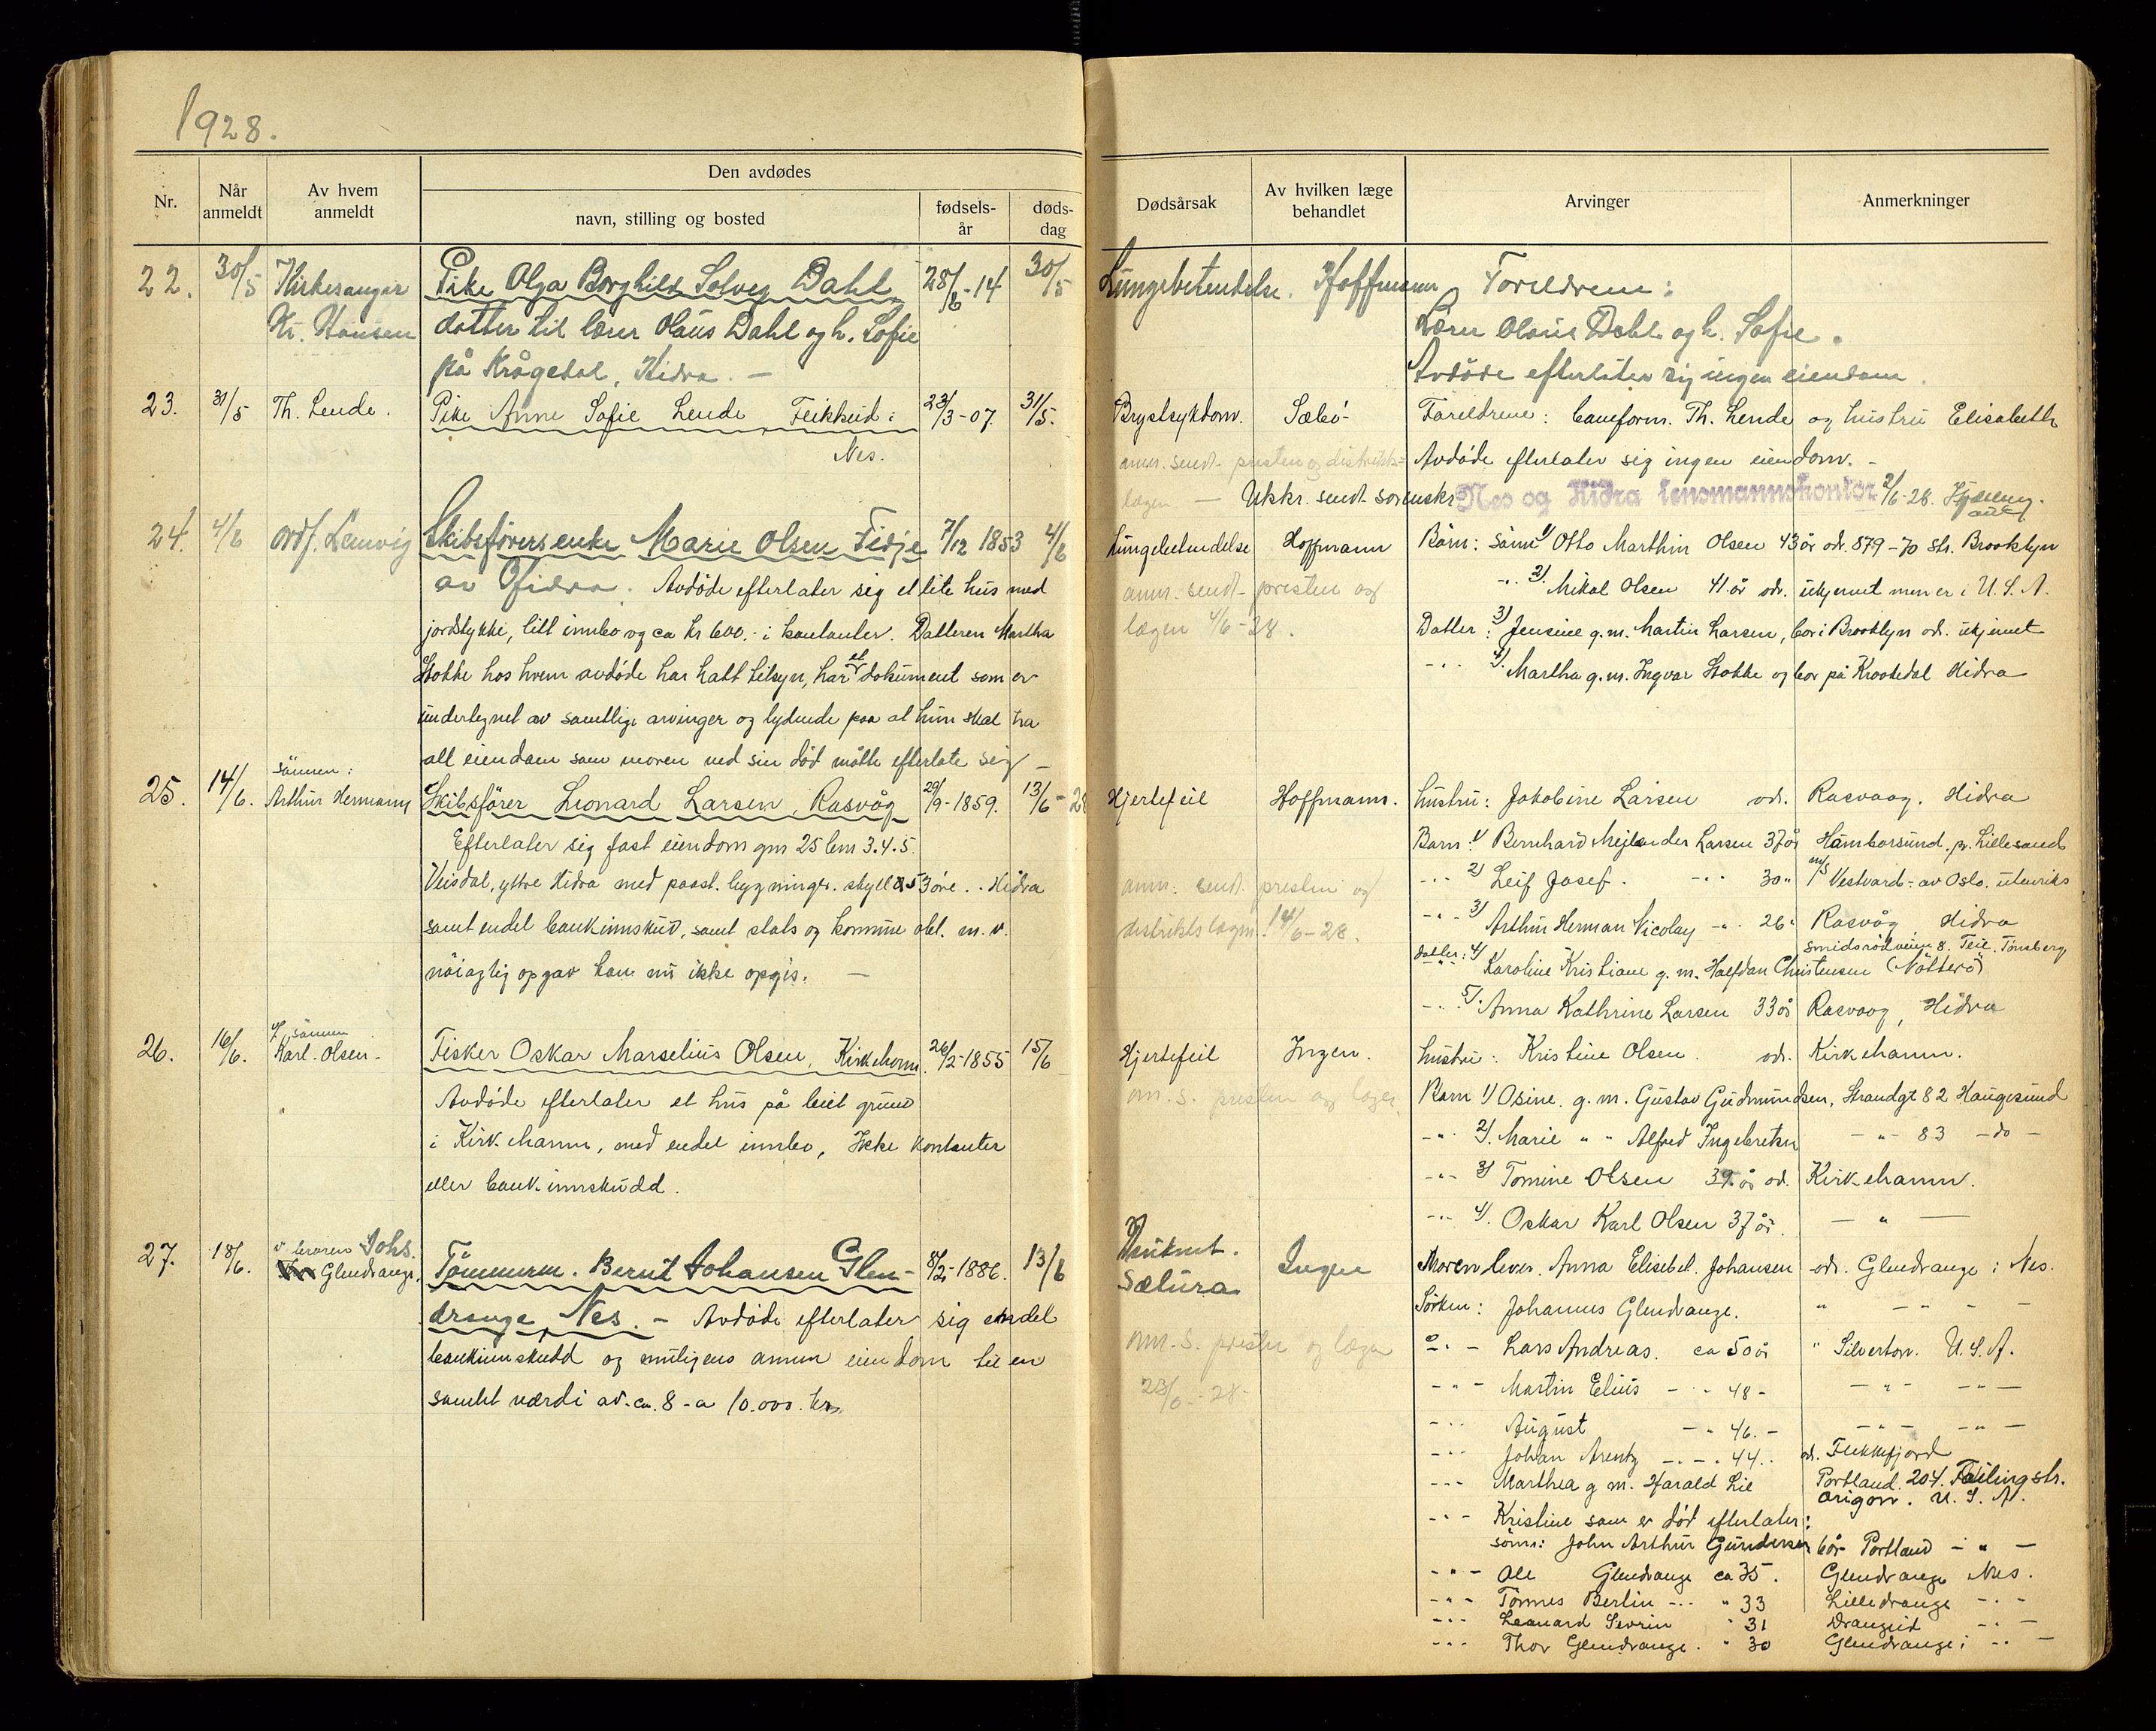 1928.
Nr.
Når anmeldt
Av hvem anmeldt
Den avdødes
navn, stilling og bosted
fødsels-år
døds-dag
Dødsårsak
Av hvilken læge behandlet
Arvinger
Anmerkninger
22. 30/5 Kirkesanger Pike Olga Borghild Solveg Dahl 28/6-14 30/5 Lungebetendelse. Hoffmann Foreldrene:
Kr. Hansen datter til lærer Olaus Dahl og h. Sofie Lærer Olaus Dahl og h. Sofie.
på Krågedal, Hidra. — Avdøde efterlater sig ingen eiendom.
23. 31/5 Th. Lende. Pike Anne Sofie Lende Feikkeid i 23/3-07. 31/5. Brystsykdom. Sæbö- Foreldrene: baneform. Th. Lende og hustru Elisabeth
Nes. anm. sendt presten og distrikts= Avdøde efterlater sig ingen eiendom. -
lægen — Utskr. sendt sorenskr. Nes og Hidra lensmannskontor 2/6-28.
24. 4/6 ordf. Lemvig Skibsförers enke Marie Olsen Fidje 7/12 1853 4/6 Lungebetendelse Hoffmann Barn: sönn 1/ Otto Marthin Olsen 43 år adr. 879-70 str. Brooklyn
av Hidra. Avdøde efterlater sig et lite hus med anm. sendt presten og -"- 2/. Mikal Olsen 41 år adr. ukjennt men er i U.S.A.
jordstykke, litt innbo og ca kr 600.- i kontanter. Datteren Martha lægen 4/6-28. Datter: 3/ Jensine g.m. Martin Larsen, bor i Brooklyn adr. ukjennt
Stokke hos hvem avdøde har hatt tilsyn, har et dokument som er -"- 4/. Martha g.m. Ingvar Stokke og bor på Krookedal Hidra
undertegnet av samtlige arvinger og lydende paa at hun skal ha
all eiendom som moren ved sin död måtte efterlate sig —
25. 14/6. sönnen: Arthur Hermann Skibsförer Leonard Larsen, Rasvåg 29/9-1859. 13/6-28 Hjertefeil Hoffmann. hustru: Jakobine Larsen adr. Rasvaag. Hidra
Efterlater sig fast eiendom gnr 25 bnr 3.4.5. Barn 1/ Bernhard Mejlender Larsen 37 år Hamborsund. pr. Lillesand
Veisdal, yttre Hidra med paast. bygninger. skyld 53 öre.. Hidra anm. sendt presten og -"- 2/ Leif Josef. -"- 30 " m/s Vestvard- av Oslo. utenriks
samt endel bankinnskud, samt stats og kommune obl. m. v. distriktslægen. 14/6-28. -"- 3/ Arthur Herman Nicolay -"- 26 " Rasvåg Hidra
nöiagtig opgav kan nu ikke opgis. — datter: 4/ Karoline Kristiane g.m. Halfdan Christensen Smidsrödveien 8. Teie. Tønsberg (Nötterö)
-"- 5/. Anna Kathrine Larsen 33 år Rasvaag, Hidra
26. 16/6. v/ sönnen Karl Olsen- Fisker Oskar Marselius Olsen, Kirkehavn. 26/2-1855 15/6 Hjertefeil Ingen. hustru: Kristine Olsen. adr. Kirkehamn.
Avdöde efterlater et hus på leiet grunn an. s. presten og lægen. Barn 1/ Osine. g.m. Gustav Gudmundsen, Strandgt 82 Haugesund
i Kirkehamn, med endel innbo, Ikke kontanter -"- 2/. Marie " " Alfred Ingebretsen — " — 83 — do —
eller bankinnskudd. -"- 3/ Tomine Olsen 39. år ad. Kirkehamn.
-"- 4/. Oskar Karl Olsen 37 år. — " —
27. 18/6. v broren Johs. Glendrange. Tömmerm. Bernt Johansen Glen- 8/2-1886. 13/6 Ingen Moren lever. Anna Elisebet. Johansen adr. Glendrange i Nes.
drange, Nes. - Avdöde efterlater sig endel Sætura Søsken: Johannes Glendrange. " — " —
bankinnskudd og muligens annen eiendom til en an. s. presten og lægen -"- Lars Andreas. ca 50 år " Silverton. U.S.A.
samlet værdi av ca. 8 - a 10.000. kr. 23/6-28- -"- Martin Elius -"- 48 - — " — — " —
-"- August - " 46. - — " — — " —
-"- Johan Arentz -"- 44.. ad. Flekkefjord
-"- Marthea g m. Harald Lie Portland. 204. Failing str. origon. U.S.A.
-"- Kristine som er död efterlater:
sönn: John Arthur Gundersen bor Portland — " —
-"- Ole Glendrange ca 35. Glendrange Nes.
-"- Tönnes Berlin -"- " 33 Lilledrange -"-
-"- Leonard Sevrin " 31 Drangeid -"-
-"- Thor Glendrange. " 30 Glendrange i -"-